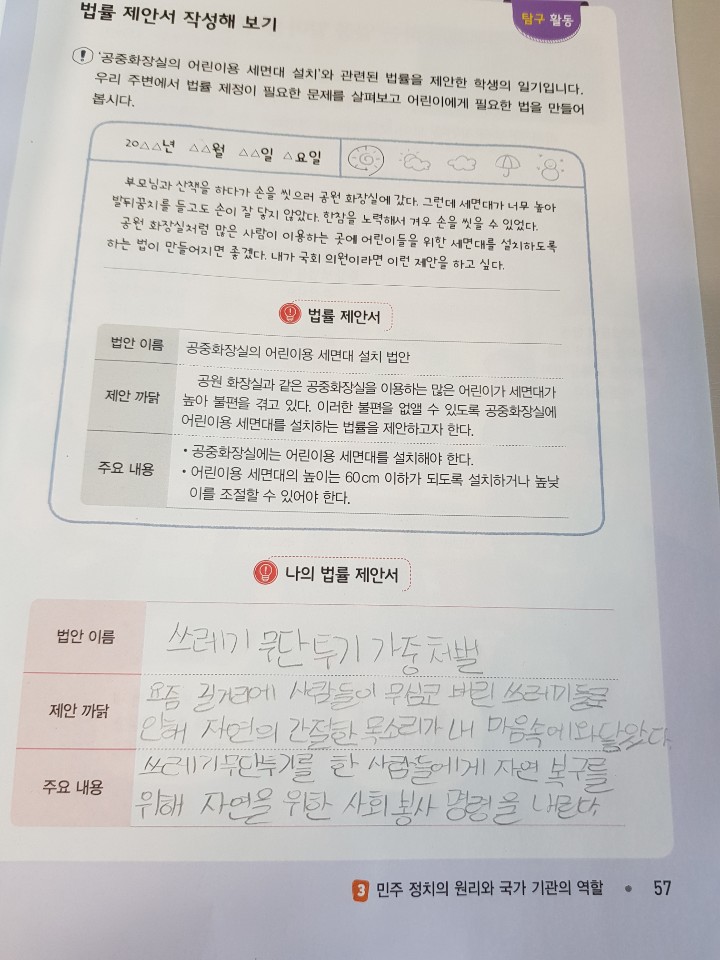 법률 제안서 작성해 보기
탐구 활동
'공중화장실의 어린이용 세면대 설치'와 관련된 법률을 제안한 학생의 일기입니다.
우리 주변에서 법률 제정이 필요한 문제를 살펴보고 어린이에게 필요한 법을 만들어
봅시다.
20△△년 △△월 △△일 △요일
부모님과 산책을 하다가 손을 씻으러 공원 화장실에 갔다. 그런데 세면대가 너무 높아
발뒤꿈치를 들고도 손이 잘 닿지 않았다. 한참을 노력해서 겨우 손을 씻을 수 있었다.
공원 화장실처럼 많은 사람이 이용하는 곳에 어린이들을 위한 세면대를 설치하도록
하는 법이 만들어지면 좋겠다. 내가 국회 의원이라면 이런 제안을 하고 싶다.
법률 제안서
법안 이름
공중화장실의 어린이용 세면대 설치 법안
제안 까닭
공원 화장실과 같은 공중화장실을 이용하는 많은 어린이가 세면대가
높아 불편을 겪고 있다. 이러한 불편을 없앨 수 있도록 공중화장실에
어린이용 세면대를 설치하는 법률을 제안하고자 한다.
주요 내용
• 공중화장실에는 어린이용 세면대를 설치해야 한다.
• 어린이용 세면대의 높이는 60cm 이하가 되도록 설치하거나 높낮
이를 조절할 수 있어야 한다.
나의 법률 제안서
법안 이름
쓰레기 무단 투기 가중처벌
제안 까닭
요즘 길거리에 사람들이 무심코 버린
인해 자연의 간절한 목소리가 내 마음속에 와닿았다.
주요 내용
쓰레기무단투기를 한 사람들에게 자연 복구를
위해 자연을 위한 사회봉사 명령을 내린다.
3 민주 정치의 원리와 국가 기관의 역할 • 57